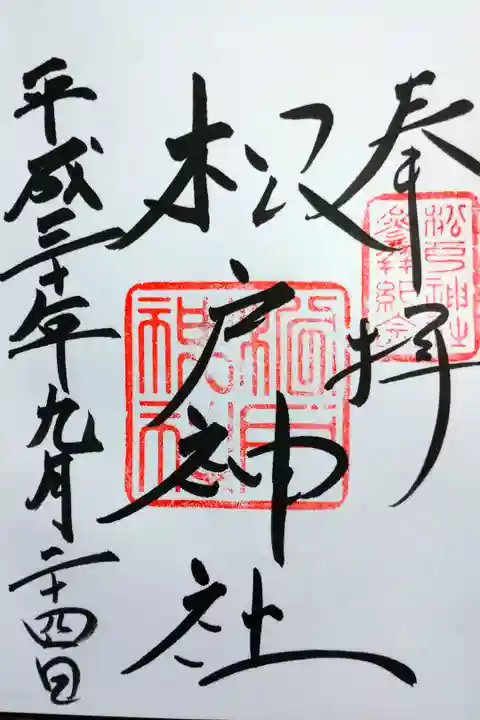 奉拝
松戸神社
平成三十年九月二十四日
松戸神社
参拝紀念
松戸神社